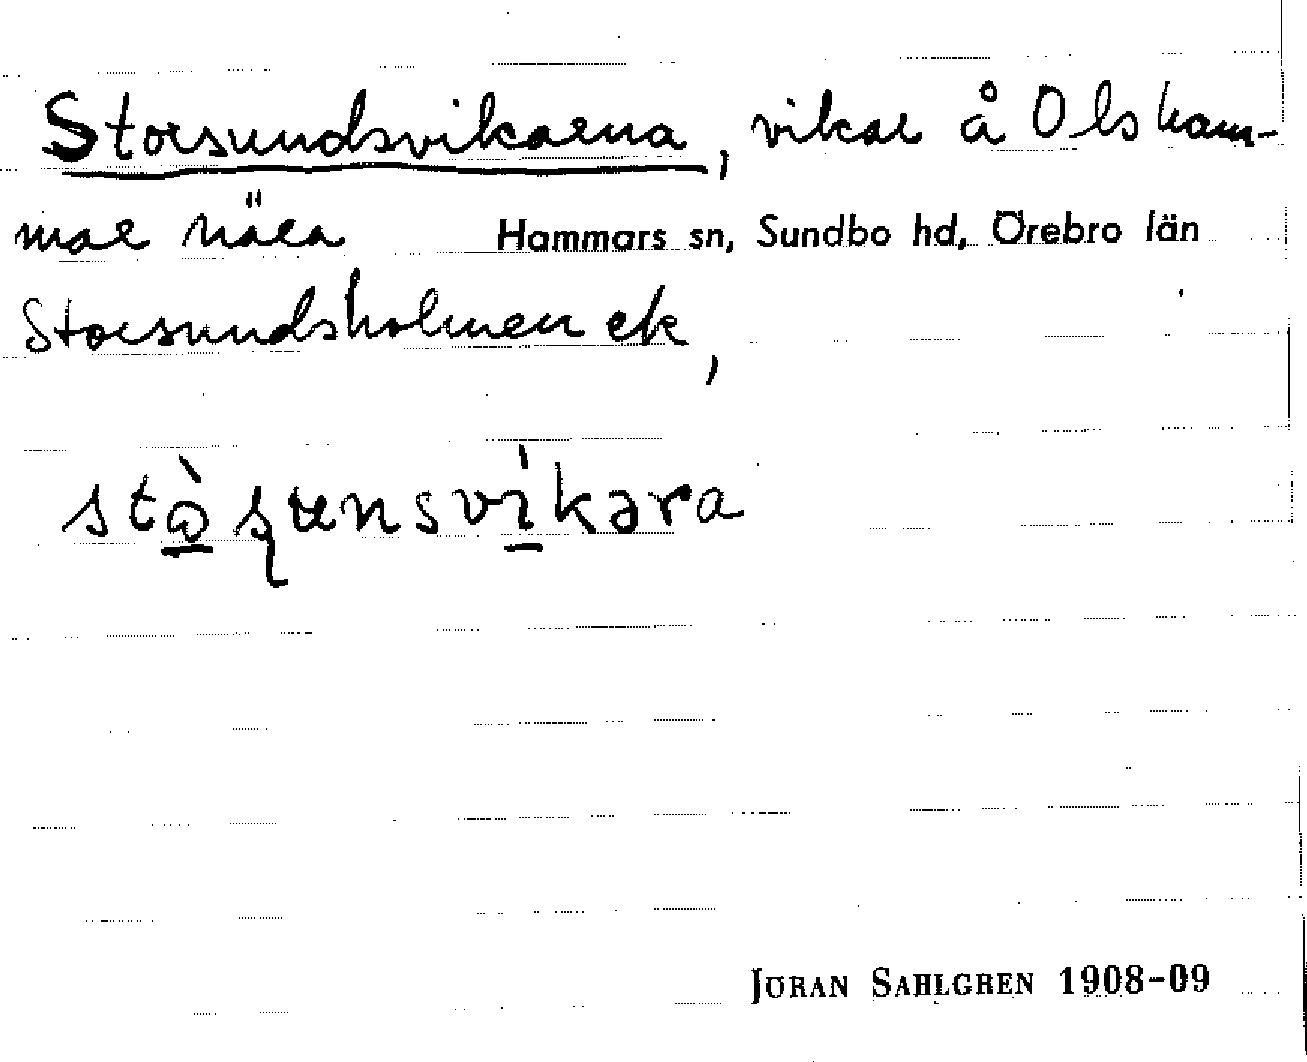 Storsundsvikarna, vikar å Olsham-
mar nära Hammars sn, Sundbo hd, Örebro län
Storsundsholmen ek,
stò̱ʂɯnsvì̱kəra
JÖRAN SAHLGREN 1908-09